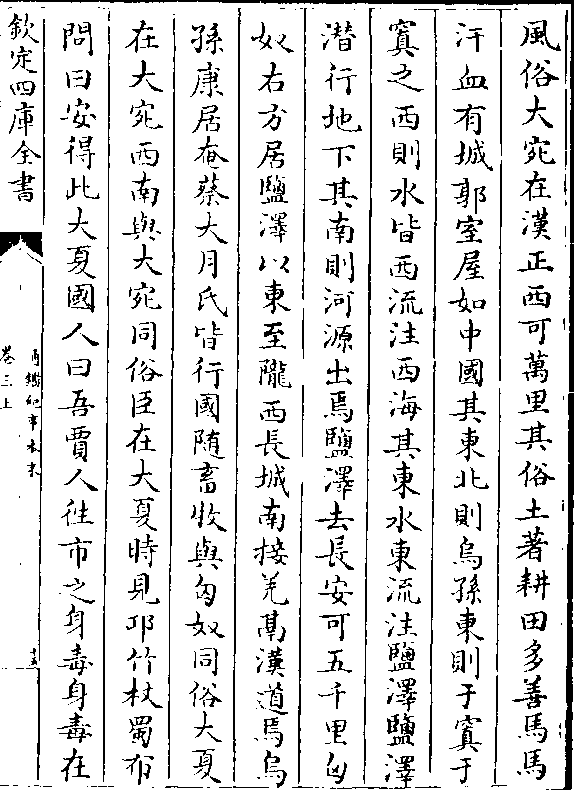 風俗大宛在漢正西可萬里其俗土著耕田多善馬馬
汗血有城郭室屋如中國其東北則烏孫東則于窴于
窴之西則水皆西流注西海其東水東流注鹽澤鹽澤
潜行地下其南則河源出焉鹽澤去長安可五千里匈
奴右方居鹽澤以東至隴西長城南接羌鬲漢道焉烏
孫康居奄蔡大月氏皆行國随畜收與匈奴同俗大夏
在大宛西南與大宛同俗臣在大夏時見邛竹杖蜀布
問曰安得此大夏國人曰吾賈人徃市之身毒身毒在
欽定四庫全書
通鑑紀事本末
卷三上
十五